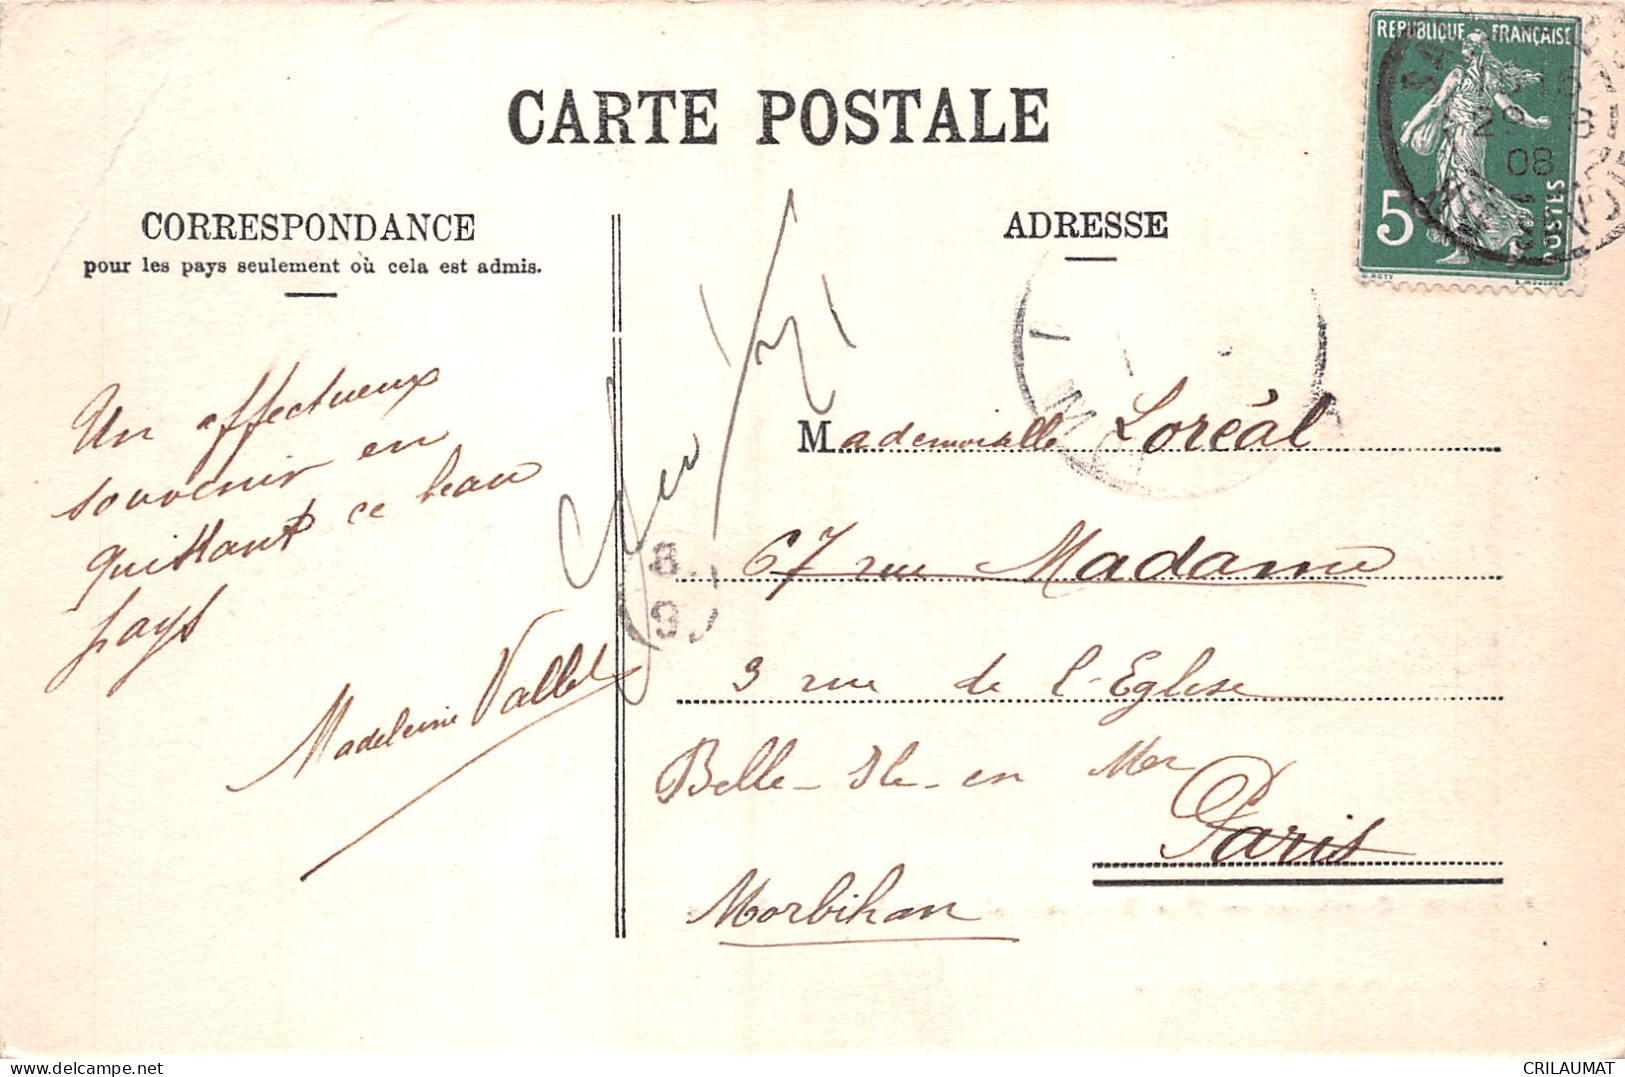 CARTE POSTALE
CORRESPONDANCE
pour les pays seulement où cela est admis.
Un affectueux
souvenir en
quittant ce beau
pays
Madeleine Vallet
ADRESSE
REPUBLIQUE FRANÇAISE
5
POSTES
08
8
9
Mademoiselle Loréal
67 rue Madame
3 rue de l'Eglise
Belle-Ile-en Mer
Paris
Morbihan
CRILAUMAT